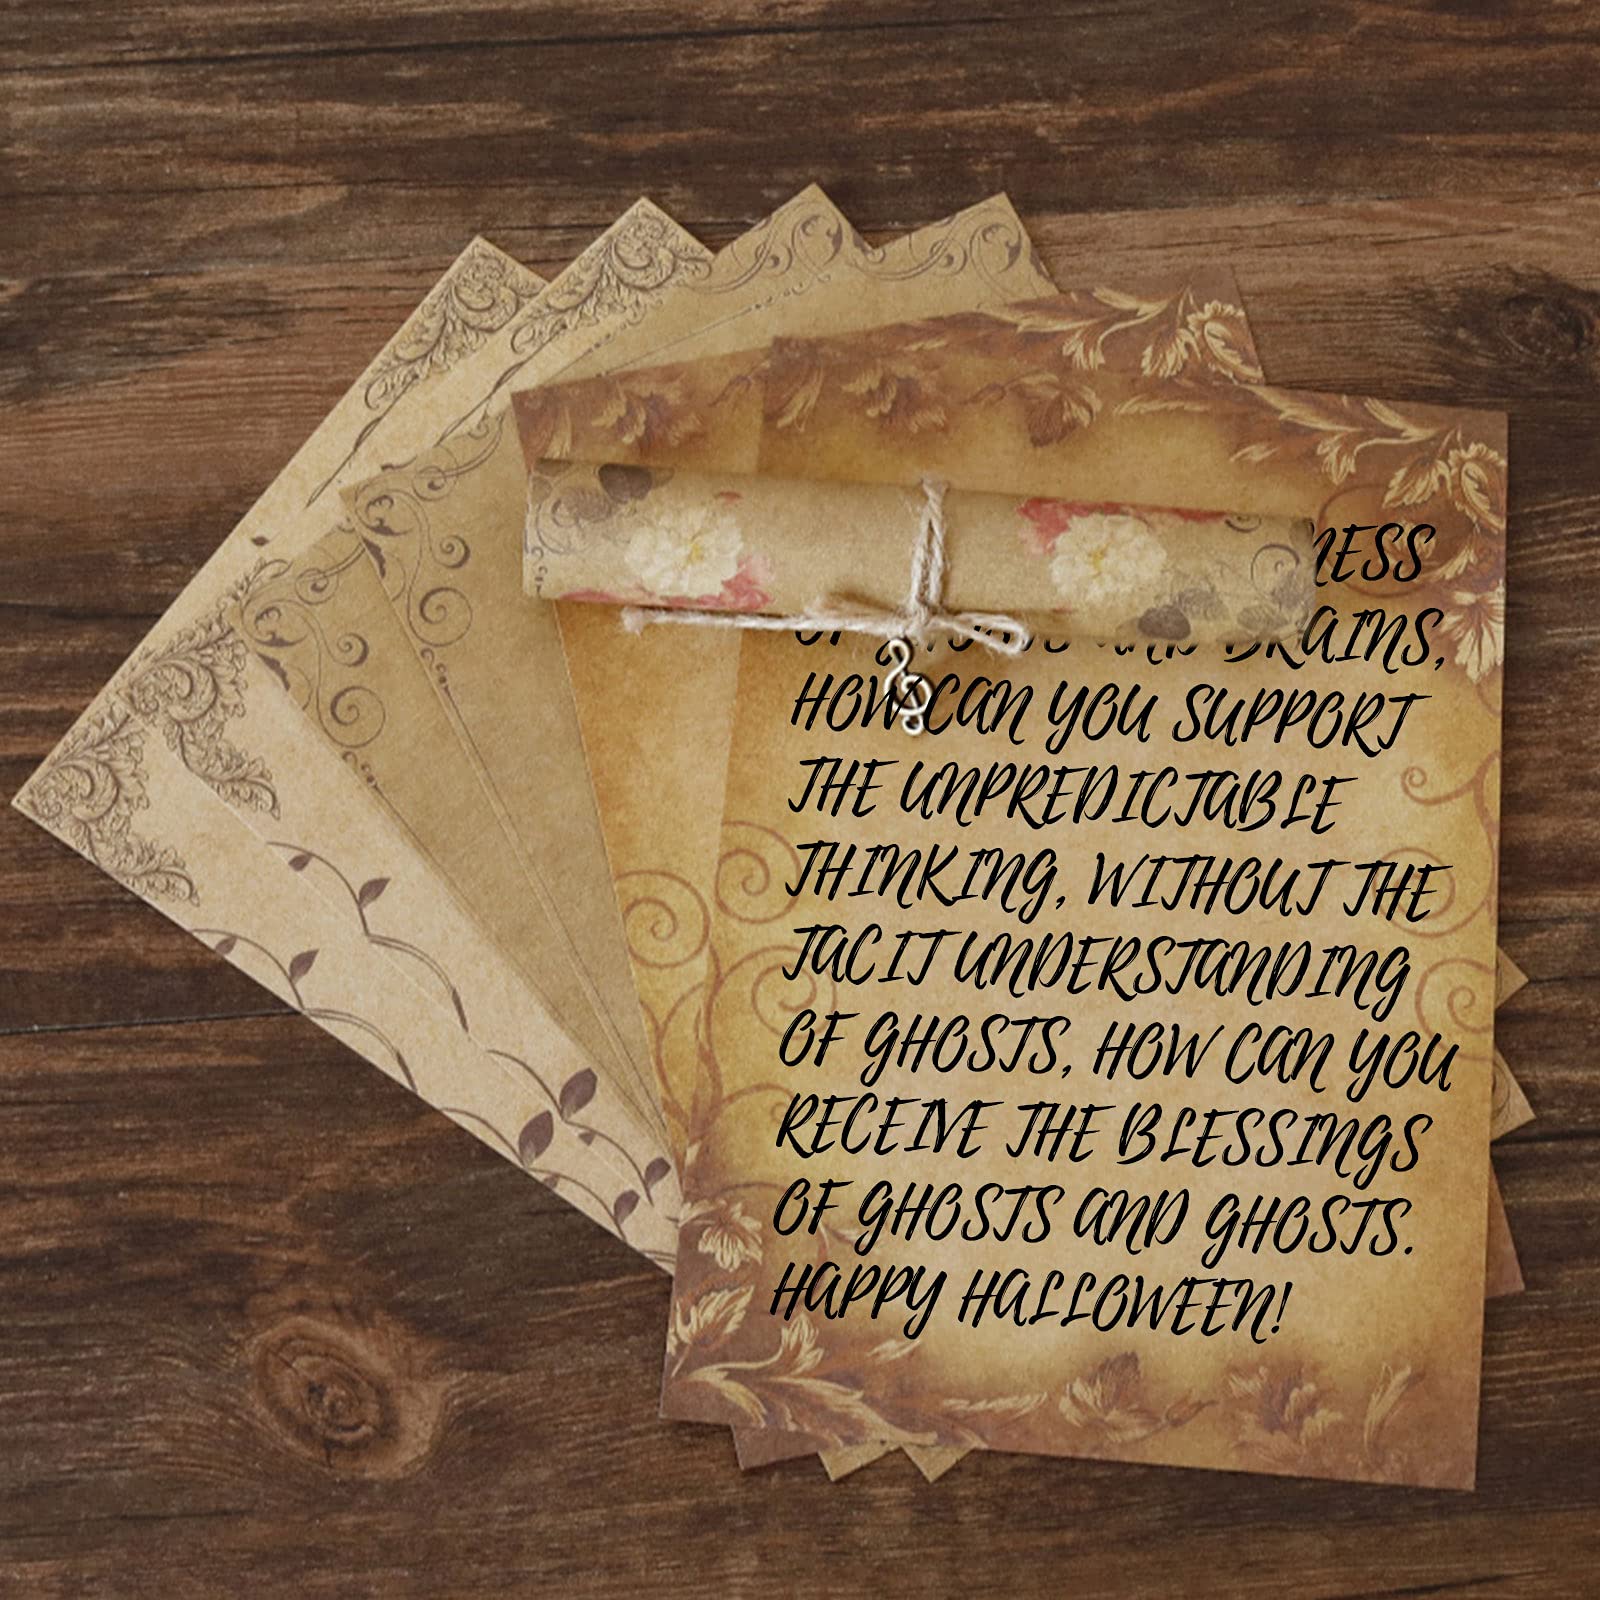 OF AND BRAINS,
HOW CAN YOU SUPPORT
THE UNPREDICTABLE
THINKING, WITHOUT THE
TACIT UNDERSTANDING
OF GHOSTS, HOW CAN YOU
RECEIVE THE BLESSINGS
OF GHOSTS AND GHOSTS.
HAPPY HALLOWEEN!